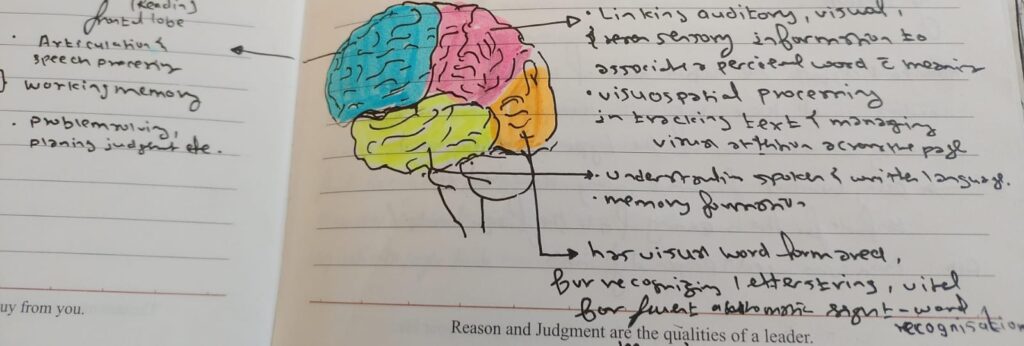 (Reading)
frontal lobe
• Articulation &
speech processing
} working memory
• problem solving,
planing judgment etc.
uy from you.
• Linking auditory, visual,
& sensory information to
associate a percieved word c̄ meaning
• visuospatial processing
in tracking text & managing
visual attention across the page
• understanding spoken & written language.
• memory formation
has visual word form area,
for recognizing letterstring, vital
for fluent automatic sight-word
recognisation
Reason and Judgment are the qualities of a leader.